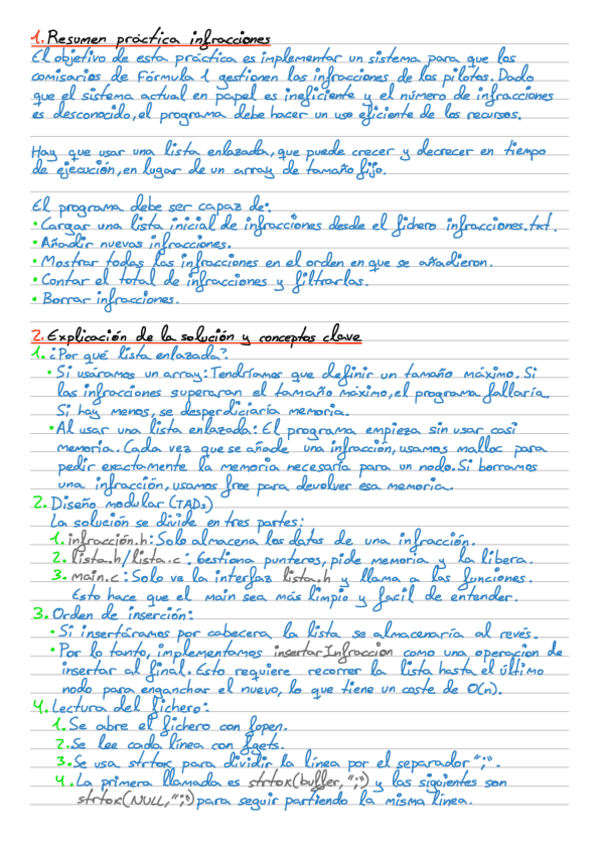 1. Resumen práctica infracciones
El objetivo de esta práctica es implementar un sistema para que los
comisarios de Fórmula 1 gestionen las infracciones de los pilotos. Dado
que el sistema actual en papel es ineficiente y el número de infracciones
es desconocido, el programa debe hacer un uso eficiente de los recursos.
Hay que usar una lista enlazada, que puede crecer y decrecer en tiempo
de ejecución, en lugar de un array de tamaño fijo.
El programa debe ser capaz de:
• Cargar una lista inicial de infracciones desde el fichero infracciones.txt.
• Añadir nuevas infracciones.
• Mostrar todas las infracciones en el orden en que se añadieron.
• Contar el total de infracciones y filtrarlas.
• Borrar infracciones.
2. Explicación de la solución y conceptos clave
1. ¿Por qué lista enlazada?
• Si usáramos un array: Tendríamos que definir un tamaño máximo. Si
las infracciones superaran el tamaño máximo, el programa fallaría.
Si hay menos, se desperdiciaría memoria.
• Al usar una lista enlazada: El programa empieza sin usar casi
memoria. Cada vez que se añade una infracción, usamos malloc para
pedir exactamente la memoria necesaria para un nodo. Si borramos
una infracción, usamos free para devolver esa memoria.
2. Diseño modular (TADs)
La solución se divide en tres partes:
1. infracción.h: Solo almacena los datos de una infracción.
2. lista.h/lista.c: Gestiona punteros, pide memoria y la libera.
3. main.c: Solo ve la interfaz lista.h y llama a las funciones.
Esto hace que el main sea más limpio y facil de entender.
3. Orden de inserción:
• Si insertáramos por cabecera la lista se almacenaría al revés.
• Por lo tanto, implementamos insertarInfraccion como una operación de
insertar al final. Esto requiere recorrer la lista hasta el último
nodo para enganchar el nuevo, lo que tiene un coste de O(n).
4. Lectura del fichero:
1. Se abre el fichero con fopen.
2. Se lee cada línea con fgets.
3. Se usa strtok para dividir la línea por el separador ";".
4. La primera llamada es strtok(buffer, ";") y las siguientes son
strtok(NULL, ";") para seguir partiendo la misma línea.